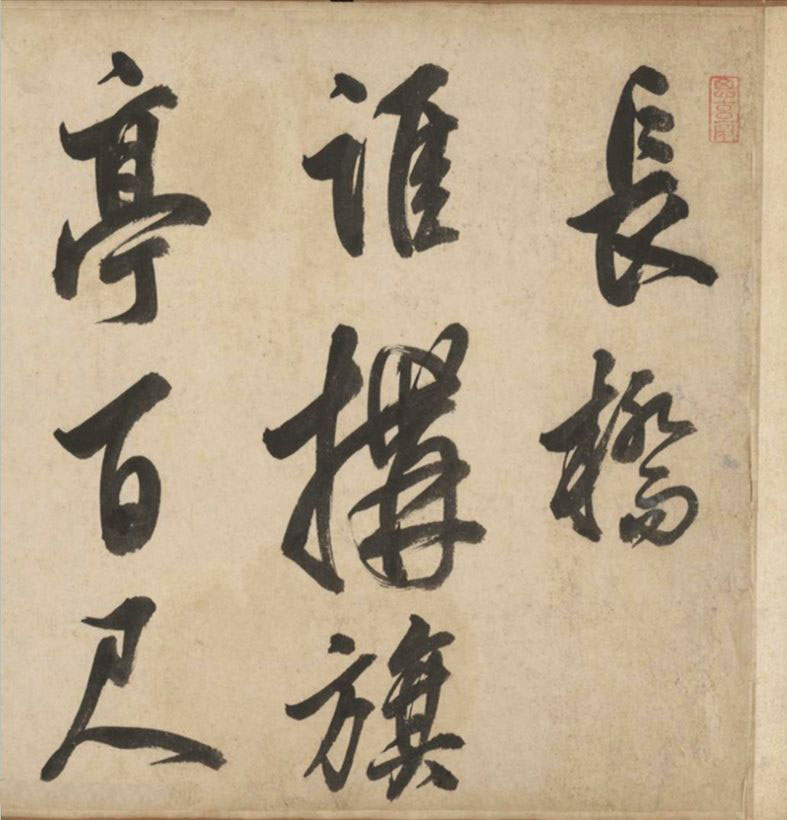 長橋
誰搆旗
亭百尺